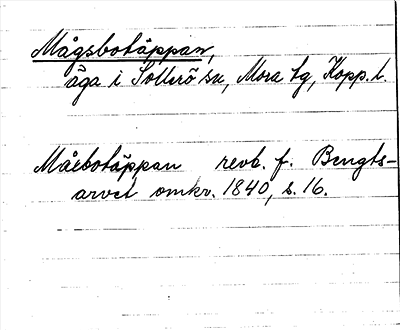 Mågsbotäppan,
äga i Sollerö sn, Mora tg, Kopp. l.
Måesbotäppan revb. f. Bengts-
arvet omkr. 1840, s. 16.